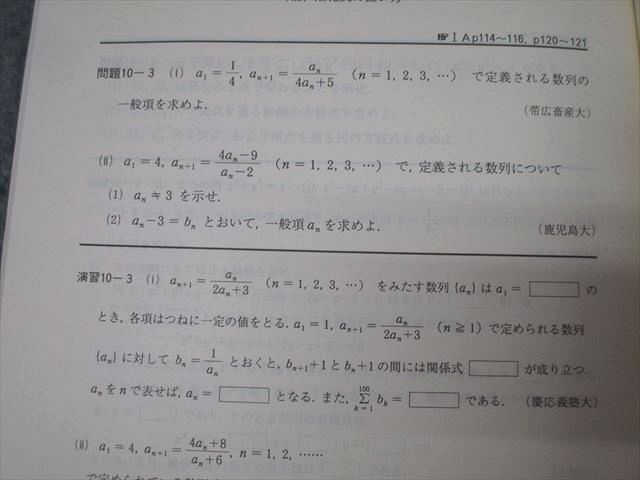 I A p114〜116, p120〜121
問題10−3 (i) a₁ = 1/4, aₙ₊₁ = aₙ/(4aₙ+5) (n = 1, 2, 3, …) で定義される数列の
一般項を求めよ. (帯広畜産大)
(ii) a₁ = 4, aₙ₊₁ = (4aₙ−9)/(aₙ−2) (n = 1, 2, 3, …) で, 定義される数列について
(1) aₙ ≠ 3 を示せ.
(2) aₙ−3 = bₙ とおいて, 一般項 aₙ を求めよ. (鹿児島大)
演習10−3 (i) aₙ₊₁ = aₙ/(2aₙ+3) (n = 1, 2, 3, …) をみたす数列 {aₙ} は a₁ = □ の
とき, 各項はつねに一定の値をとる. a₁ = 1, aₙ₊₁ = aₙ/(2aₙ+3) (n ≧ 1) で定められる数列
{aₙ} に対して bₙ = 1/aₙ とおくと, bₙ₊₁+1 と bₙ+1 の間には関係式 □ が成り立つ.
aₙ を n で表せば, aₙ = □ となる. また, Σ[k=1→100] bₖ = □ である. (慶応義塾大)
(ii) a₁ = 4, aₙ₊₁ = (4aₙ+8)/(aₙ+6), n = 1, 2, ……